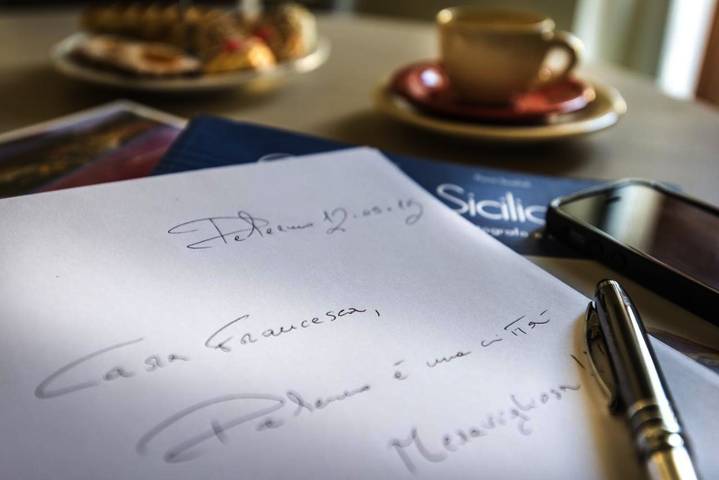 Palermo 12.05.19
Sicilia
Cara Francesca,
Palermo è una città
Meravigliosa!